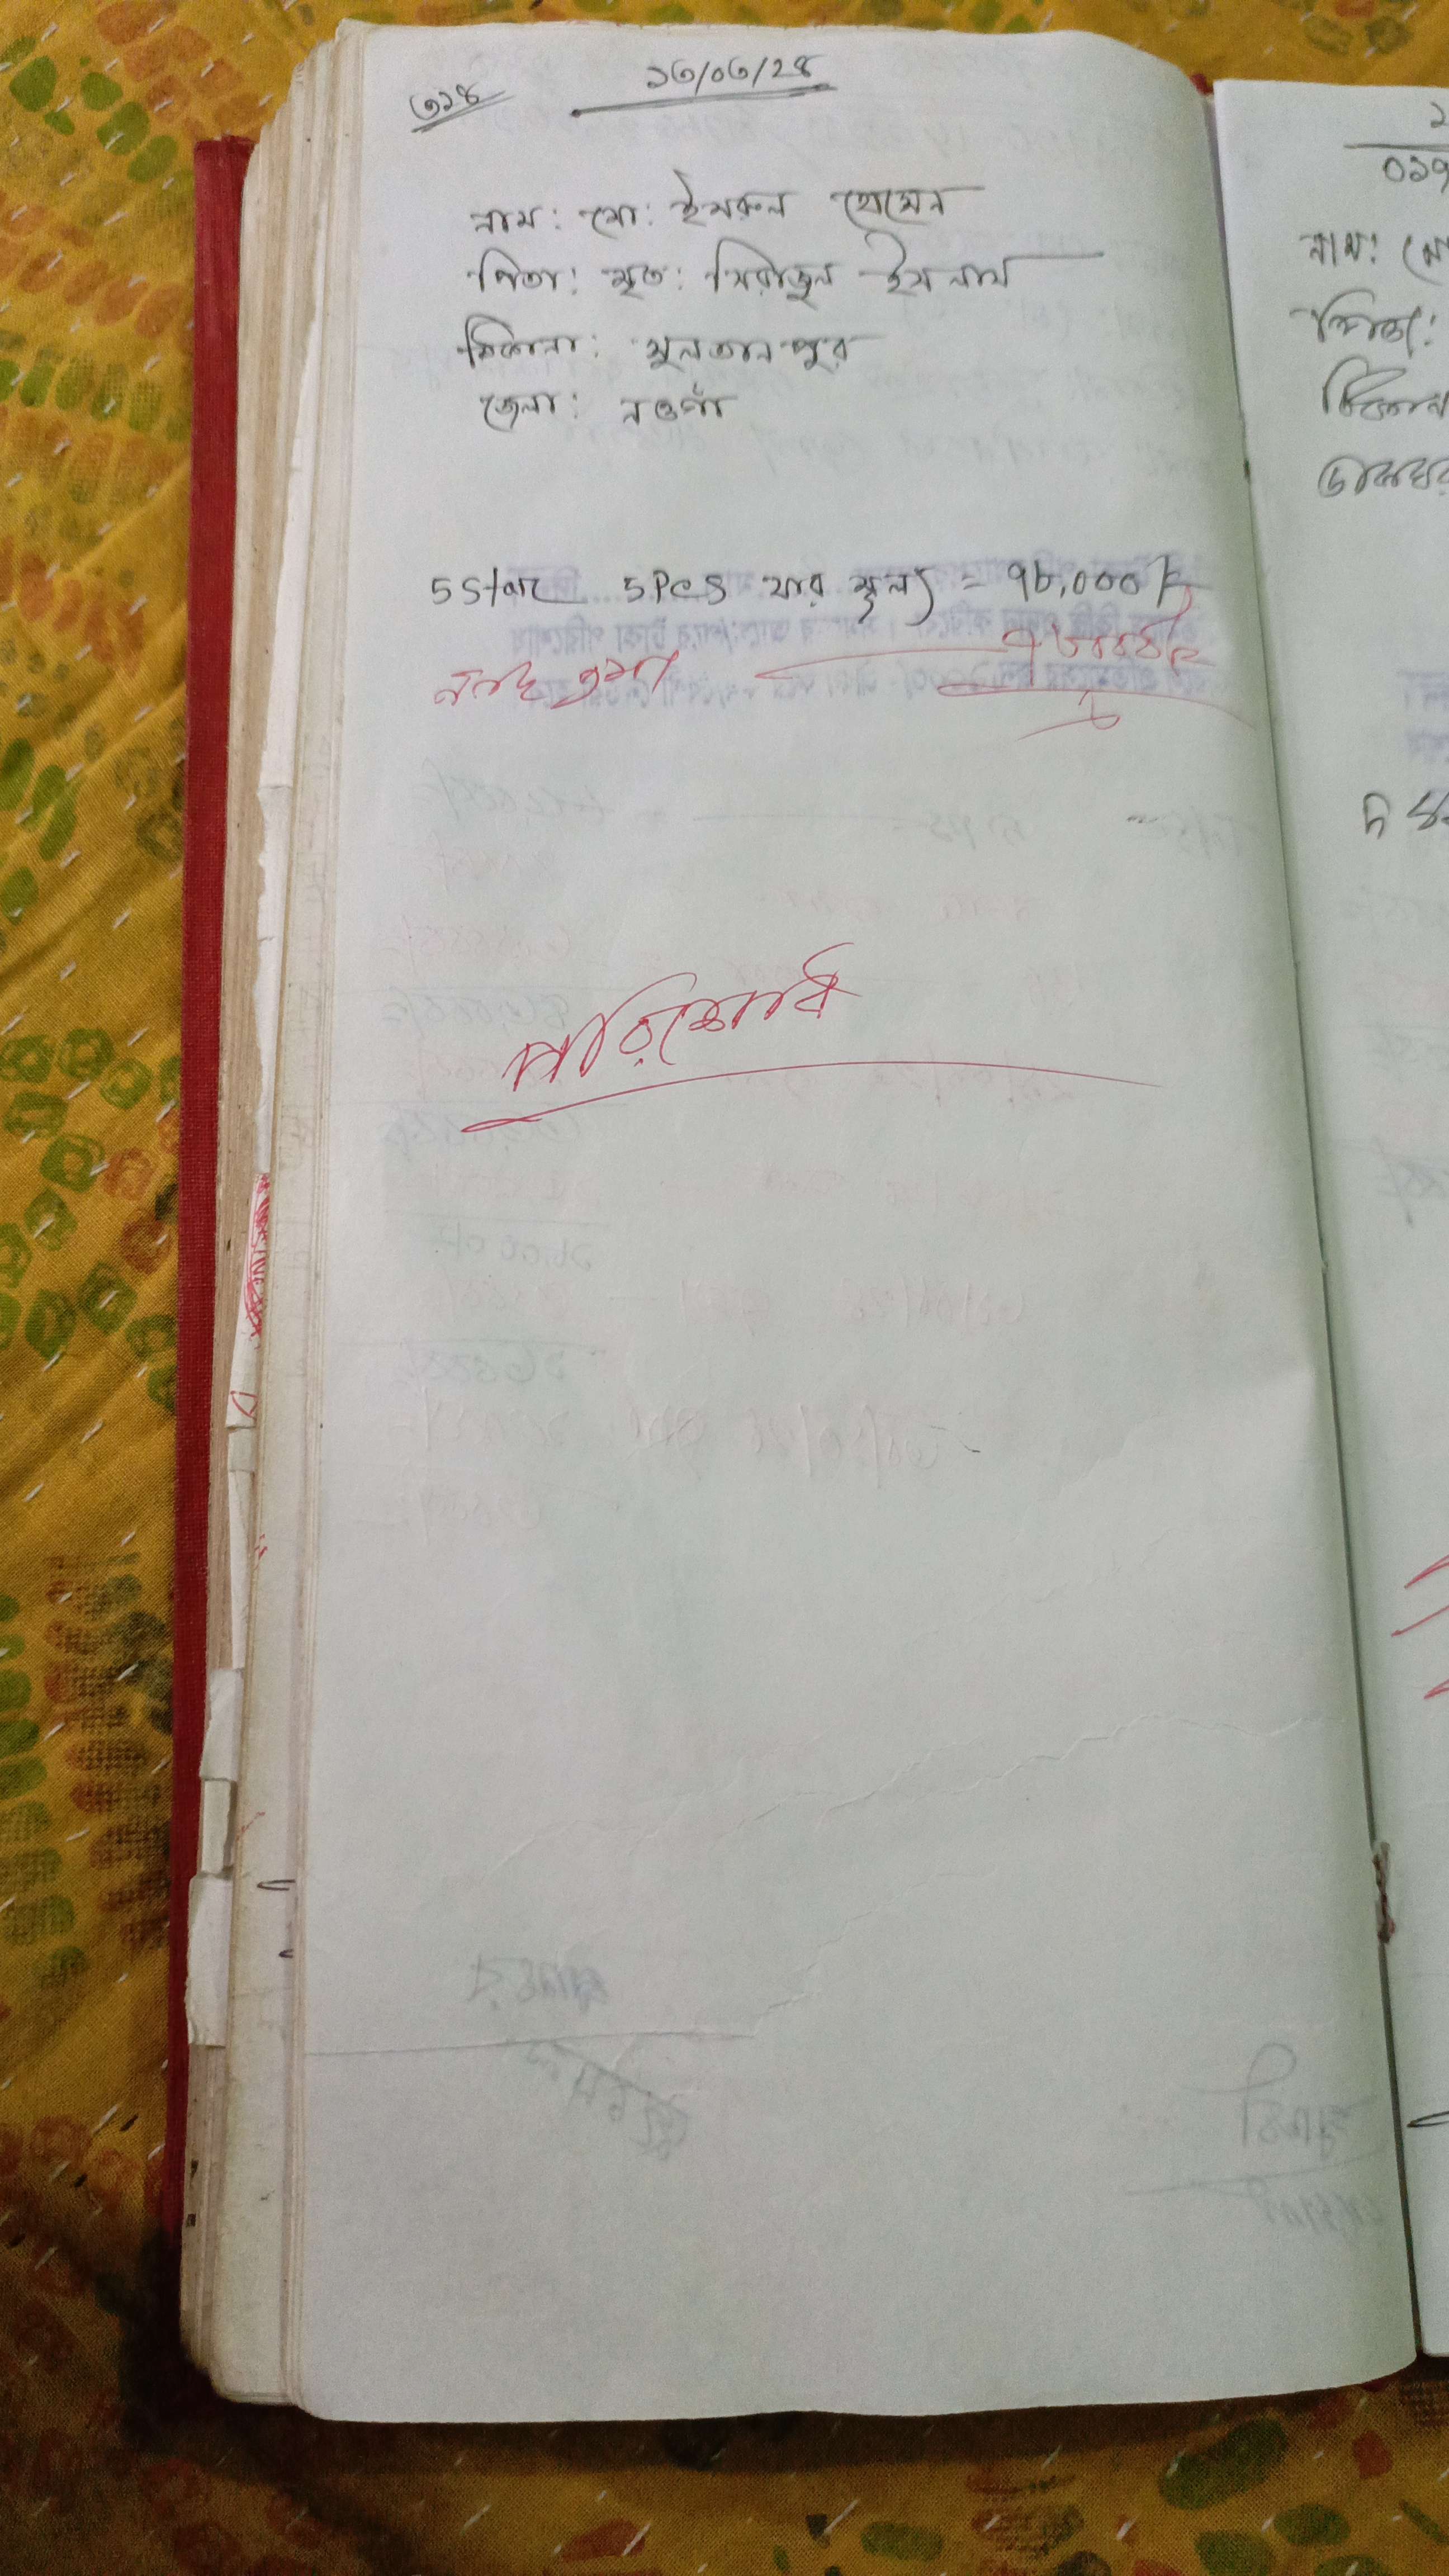 ৩১৪
১৩/০৩/২৪
নাম: মো: ইমরুল হোসেন
পিতা: মৃত: সিরাজুল ইসলাম
ঠিকানা: সুলতানপুর
জেলা: নওগাঁ
5 Star 5 Pcs যার মূল্য = ৭৮,০০০/=
নগদ জমা ৭৮০০০/=
পরিশোধ
০১৭
নাম: মো
পিতা:
ঠিকান
ডাকঘর